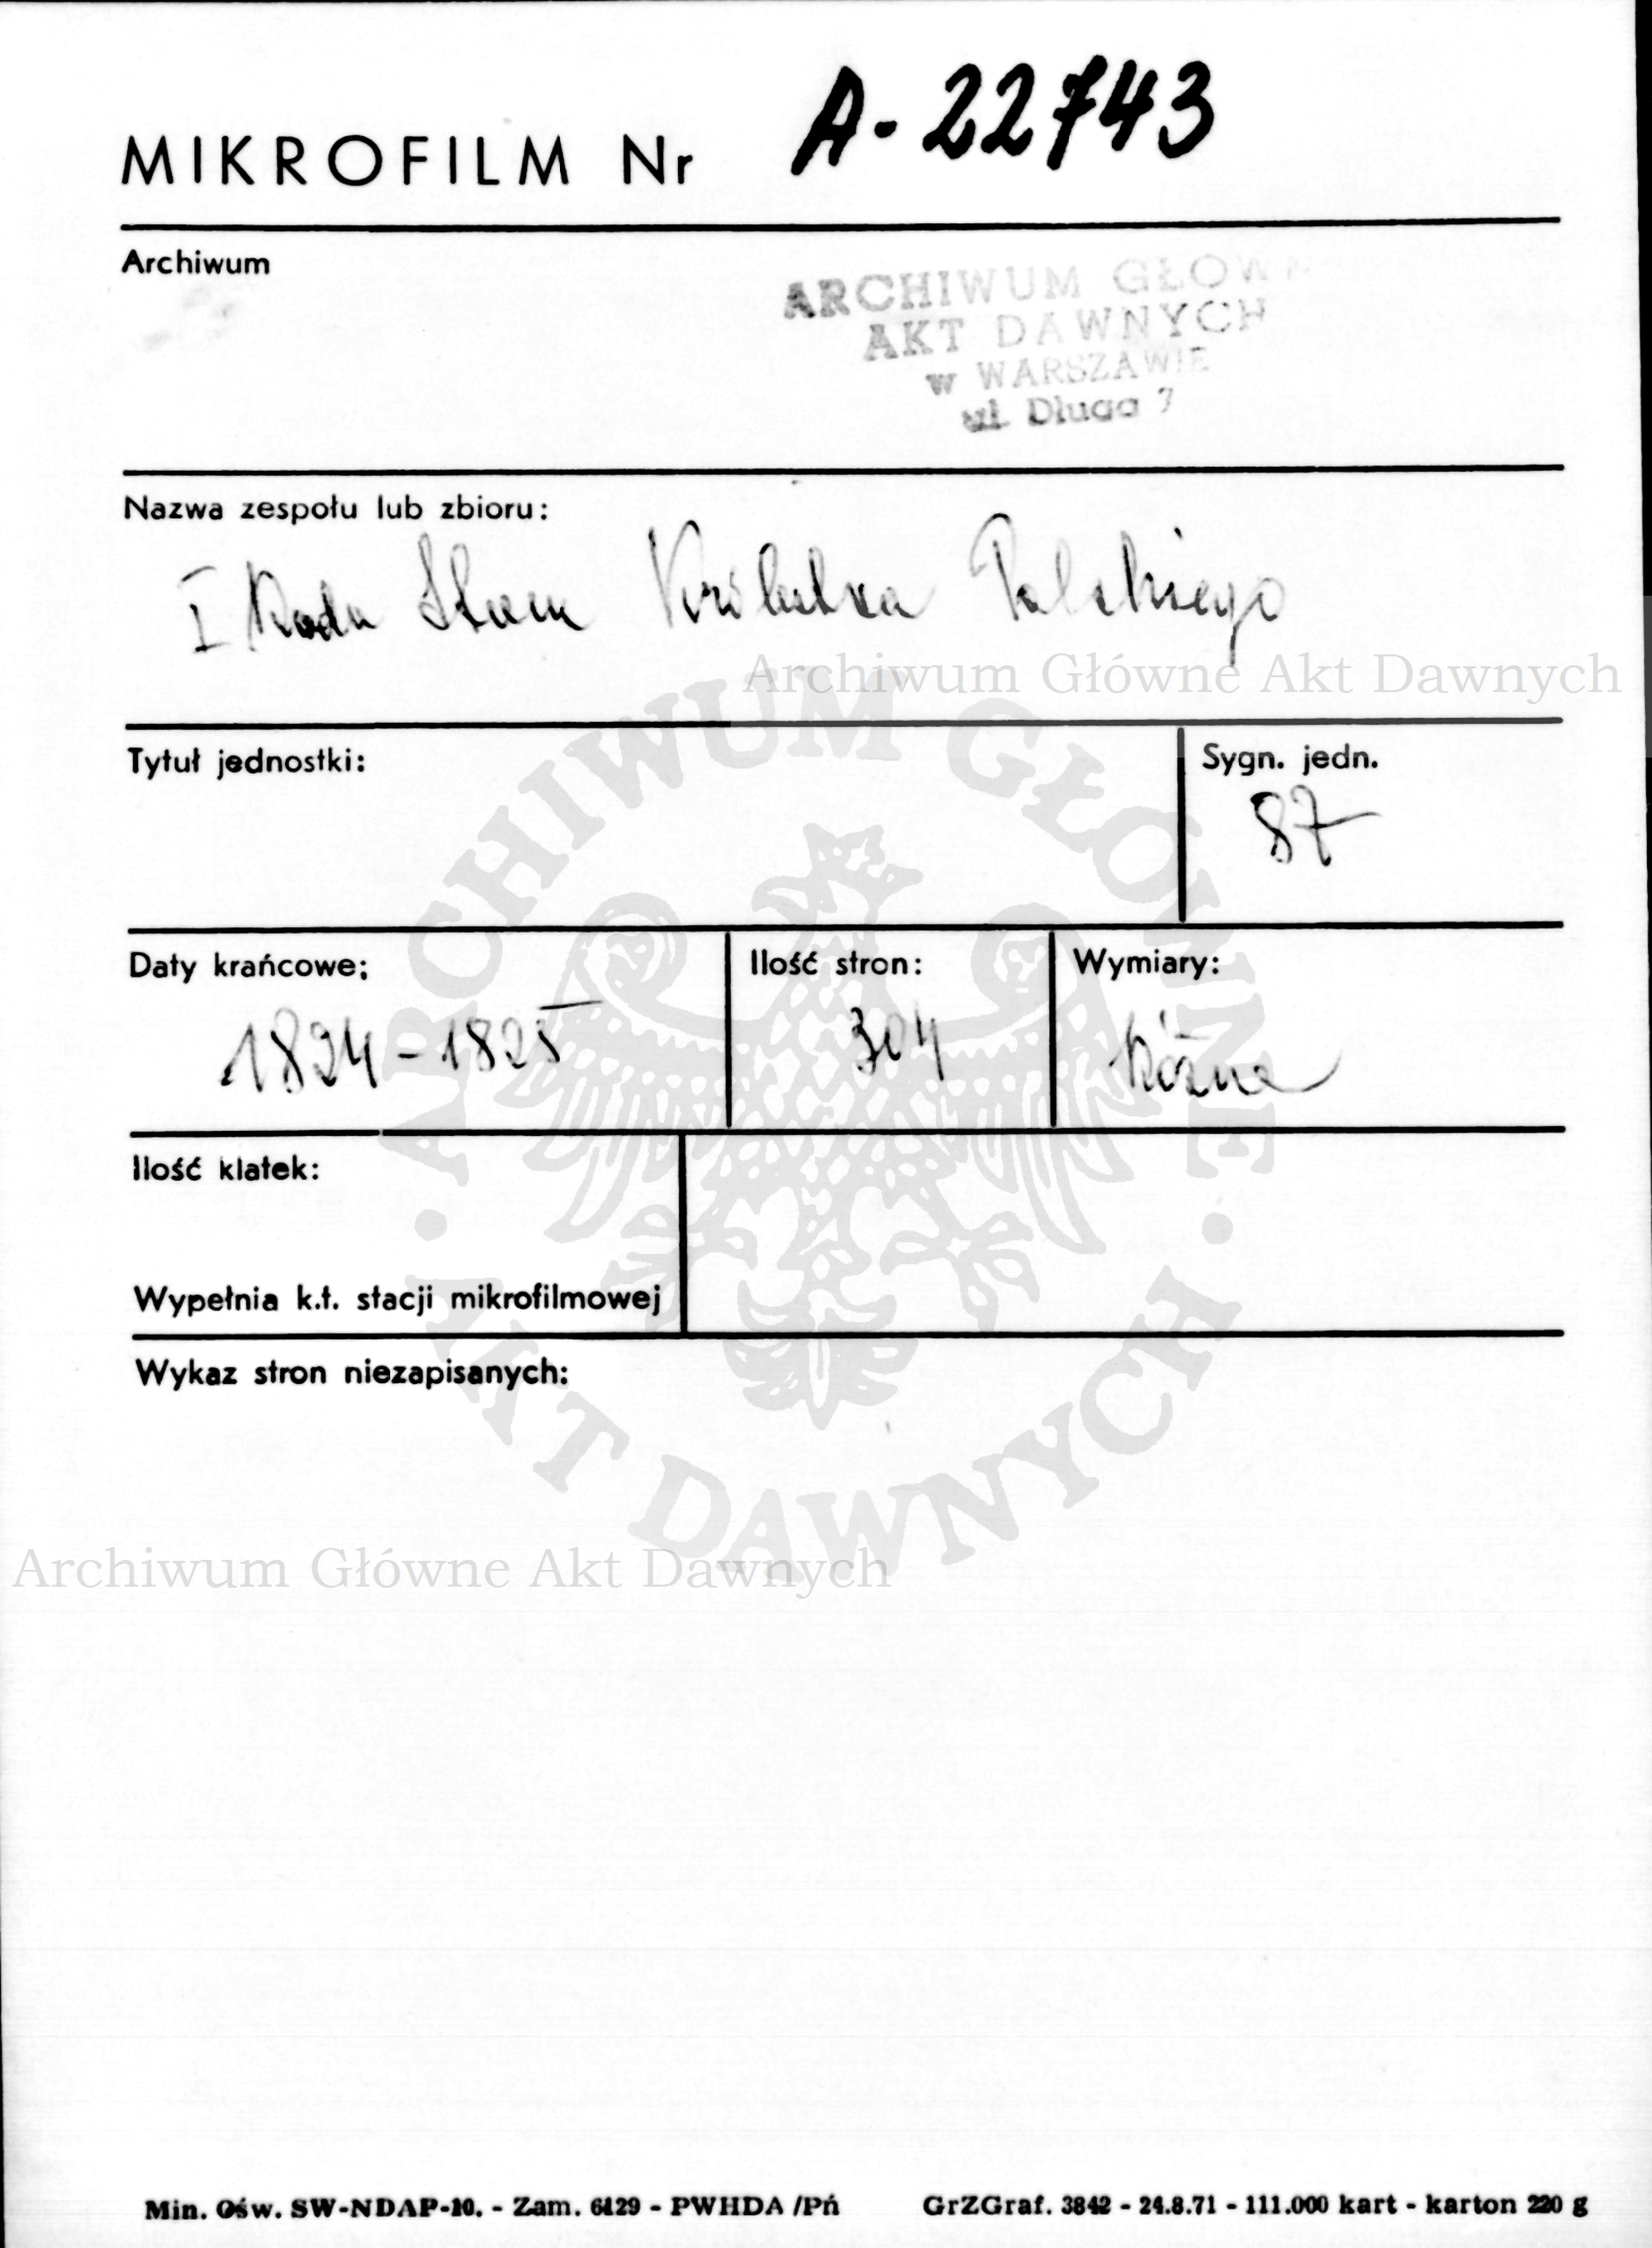 MIKROFILM Nr A-22743
Archiwum
ARCHIWUM GŁÓWN
AKT DAWNYCH
w WARSZAWIE
ul. Długa 7
Nazwa zespołu lub zbioru:
I Rada Stanu Królestwa Polskiego
Archiwum Główne Akt Dawnych
Tytuł jednostki:
Sygn. jedn.
87
Daty krańcowe:
Ilość stron:
Wymiary:
1824-1825
304
Różne
Ilość klatek:
Wypełnia k.t. stacji mikrofilmowej
Wykaz stron niezapisanych:
ARCHIWUM GŁÓWNE
AKT DAWNYCH
Archiwum Główne Akt Dawnych
Min. Ośw. SW-NDAP-10. - Zam. 6129 - PWHDA /Pń
GrZGraf. 3842 - 24.8.71 - 111.000 kart - karton 220 g